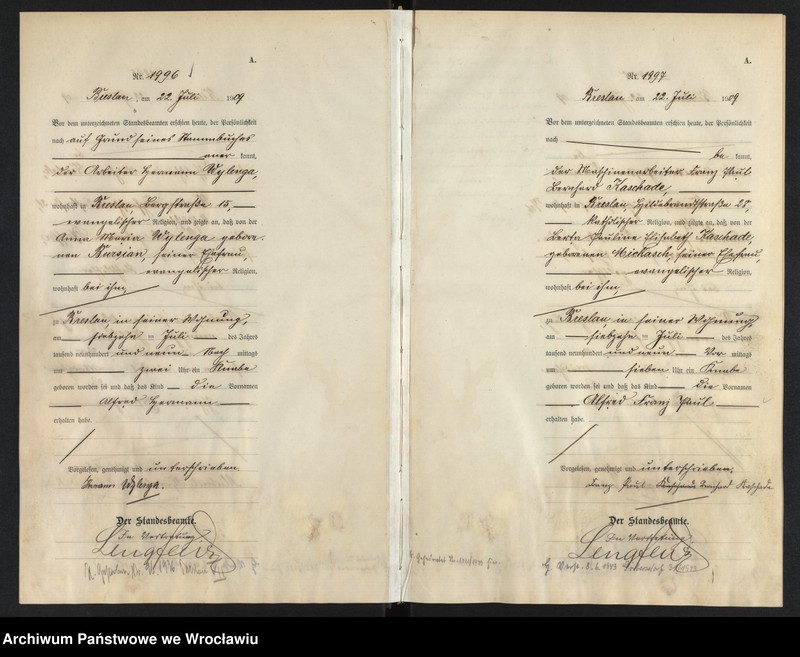 A.
Nr. 1996
Breslau, am 22. Juli 1909
Vor dem unterzeichneten Standesbeamten erschien heute, der Persönlichkeit
nach auf Grund seines Stammbuches
aner kannt,
der Arbeiter Hermann Wylenga,
wohnhaft in Breslau Bergstraße 15,
evangelischer Religion, und zeigte an, daß von der
Anna Maria Wylenga gebore-
nen Bursian, seiner Ehefrau,
evangelischer Religion,
wohnhaft bei ihm,
zu Breslau, in seiner Wohnung,
am siebzehn ten Juli des Jahres
tausend neunhundert und neun Nach mittags
um zwei Uhr ein Knabe
geboren worden sei und daß das Kind die Vornamen
Alfred Hermann
erhalten habe.
Vorgelesen, genehmigt und unterschrieben.
Hermann Wylenga.
Der Standesbeamte.
In Vertretung
Lengfeld
A.
Nr. 1997
Breslau, am 22. Juli 1909
Vor dem unterzeichneten Standesbeamten erschien heute, der Persönlichkeit
nach
be kannt,
der Maschinenarbeiter Franz Paul
Bernhard Kaschade,
wohnhaft in Breslau Hildebrandtstraße 28,
katholischer Religion, und zeigte an, daß von der
Berta Pauline Elisabeth Kaschade,
geborenen Mickasch, seiner Ehefrau,
evangelischer Religion,
wohnhaft bei ihm,
zu Breslau in seiner Wohnung,
am siebzehn ten Juli des Jahres
tausend neunhundert und neun Vor mittags
um sieben Uhr ein Knabe
geboren worden sei und daß das Kind die Vornamen
Alfred Franz Paul
erhalten habe.
Vorgelesen, genehmigt und unterschrieben.
Franz Paul Bernhard Kaschade
Der Standesbeamte.
In Vertretung
Lengfeld
Archiwum Państwowe we Wrocławiu